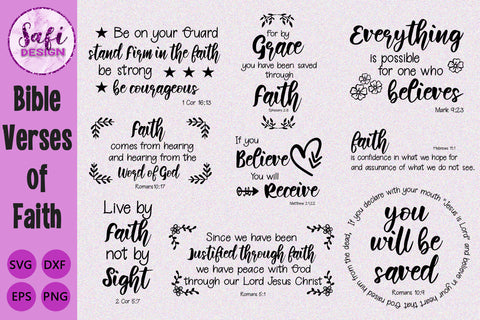 Safi
DESIGN
Bible
Verses
of
Faith
SVG DXF
EPS PNG
Be on your Guard
stand Firm in the faith
be strong
be courageous
1 Cor 16:13
for by
Grace
you have been saved
through
Faith
Ephesians 2:8
Everything
is possible
for one who
believes
Mark 9:23
Faith
comes from hearing
and hearing from the
Word of God
Romans 10:17
If you
Believe
You will
Receive
Matthew 21:22
faith
Hebrews 11:1
is confidence in what we hope for
and assurance of what we do not see.
Live by
Faith
not by
Sight
2 Cor 5:7
Since we have been
Justified through faith
we have peace with God
through our Lord Jesus Christ
Romans 5:1
If you declare with your mouth "Jesus is Lord" and believe in your heart that God raised him from the dead,
you
will be
saved
Romans 10:9